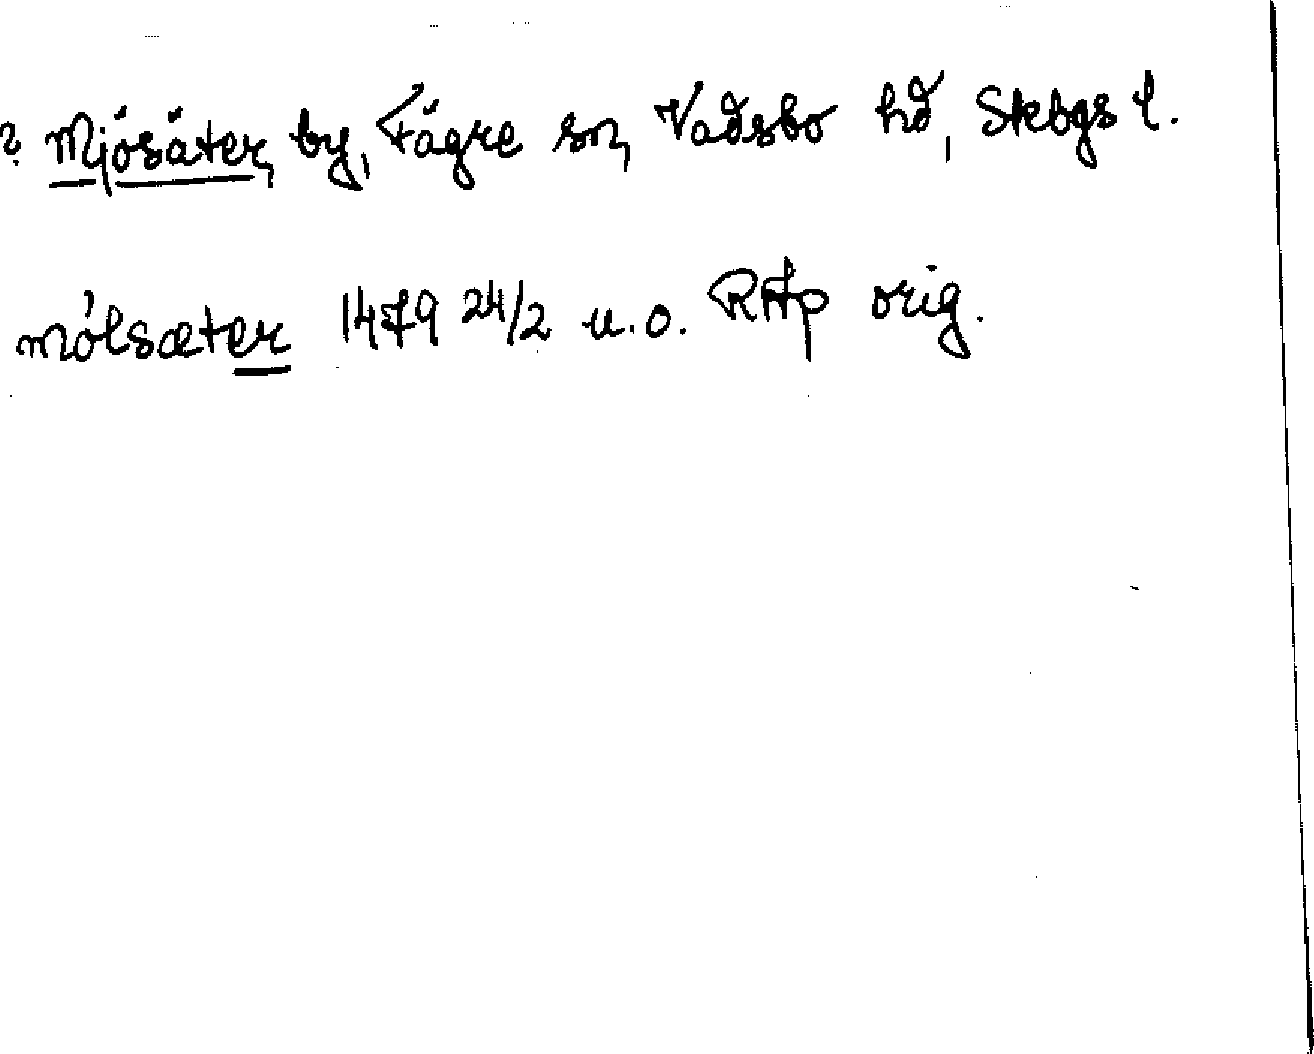 ? Mjösäter, by, Fägre sn, Vadsbo hd, Skbgs l.
mölsæter 1479 24/2 u.o. RAp orig.